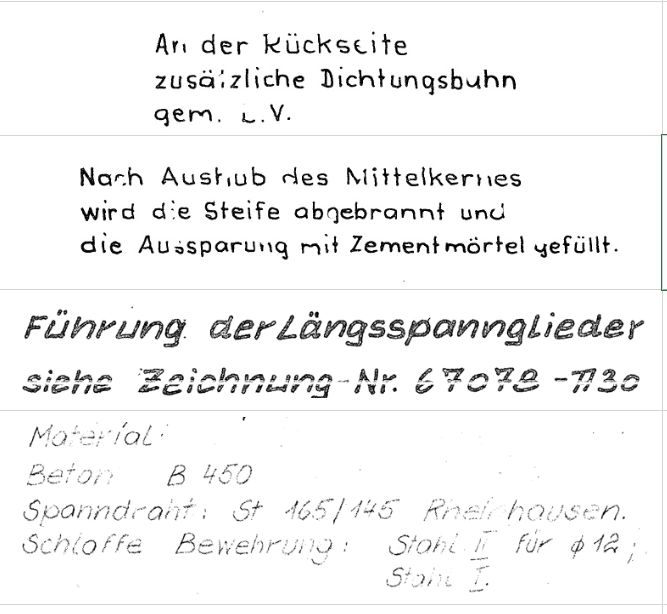 An der Rückseite
zusätzliche Dichtungsbahn
gem. L.V.
Nach Aushub des Mittelkernes
wird die Steife abgebrannt und
die Aussparung mit Zementmörtel gefüllt.
Führung der Längsspannglieder
siehe Zeichnung-Nr. 67078 -
Material:
Beton B 450
Spanndraht: St 165/145 Rheinhausen.
Schlaffe Bewehrung: Stahl II für ϕ 12;
Stahl I.